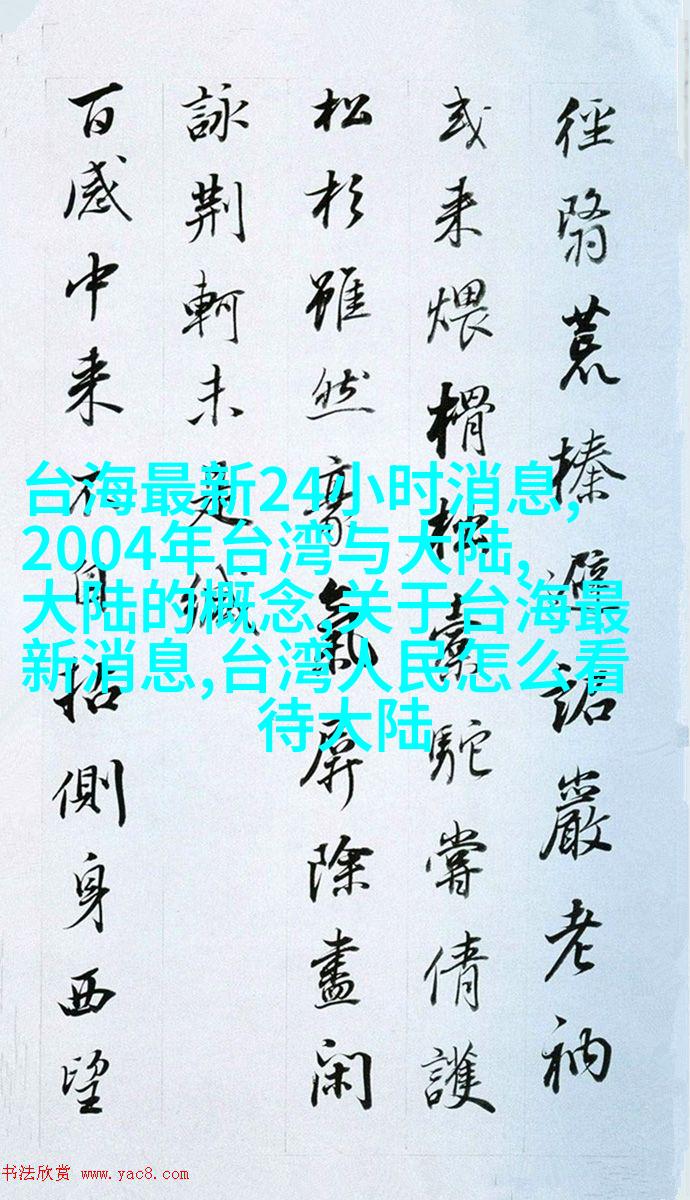 徑翳荒榛避詬嚴老衲
或来煨榾柮橐駝嘗倩護
松杉雖然豪氣屏除盡閑
詠荆軻未是
百感中来不自招側身西望
台海最新24小时消息,
2004年台湾与大陆,
大陆的概念,关于台海最
新消息,台湾人民怎么看
待大陆
书法欣赏 www.yac8.com